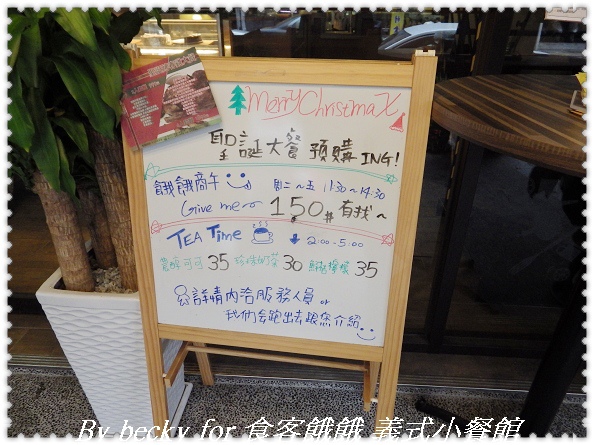 Merry Christmax
聖誕大餐 預購 ING!
餓餓商午 周二～五 11:30～14:30
Give me 150 有找~
TEA Time 2:00-5:00
濃醇可可 35 珍珠奶茶 30 檸檬 35
詳情內洽服務人員 or
我們會跑出去跟您介紹
By becky for 食客餓餓 義式小餐館